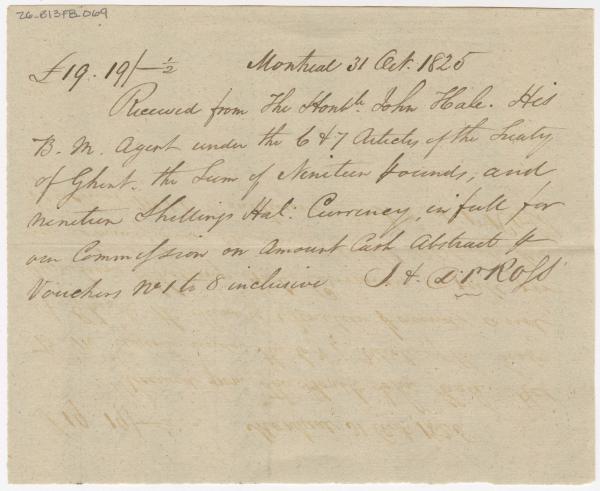 26-B13FB-069
£19.19/-½ Montreal 31 Oct. 1825
Received from The Honble John Hale. His
B. M. Agent under the 6 & 7 Articles of the Treaty
of Ghent. the Sum of Nineteen pounds, and
nineteen Shillings Hal: Currency, in full for
our Commission on Amount Cash Abstract &
Vouchers No 1 to 8 inclusive J. & Ross